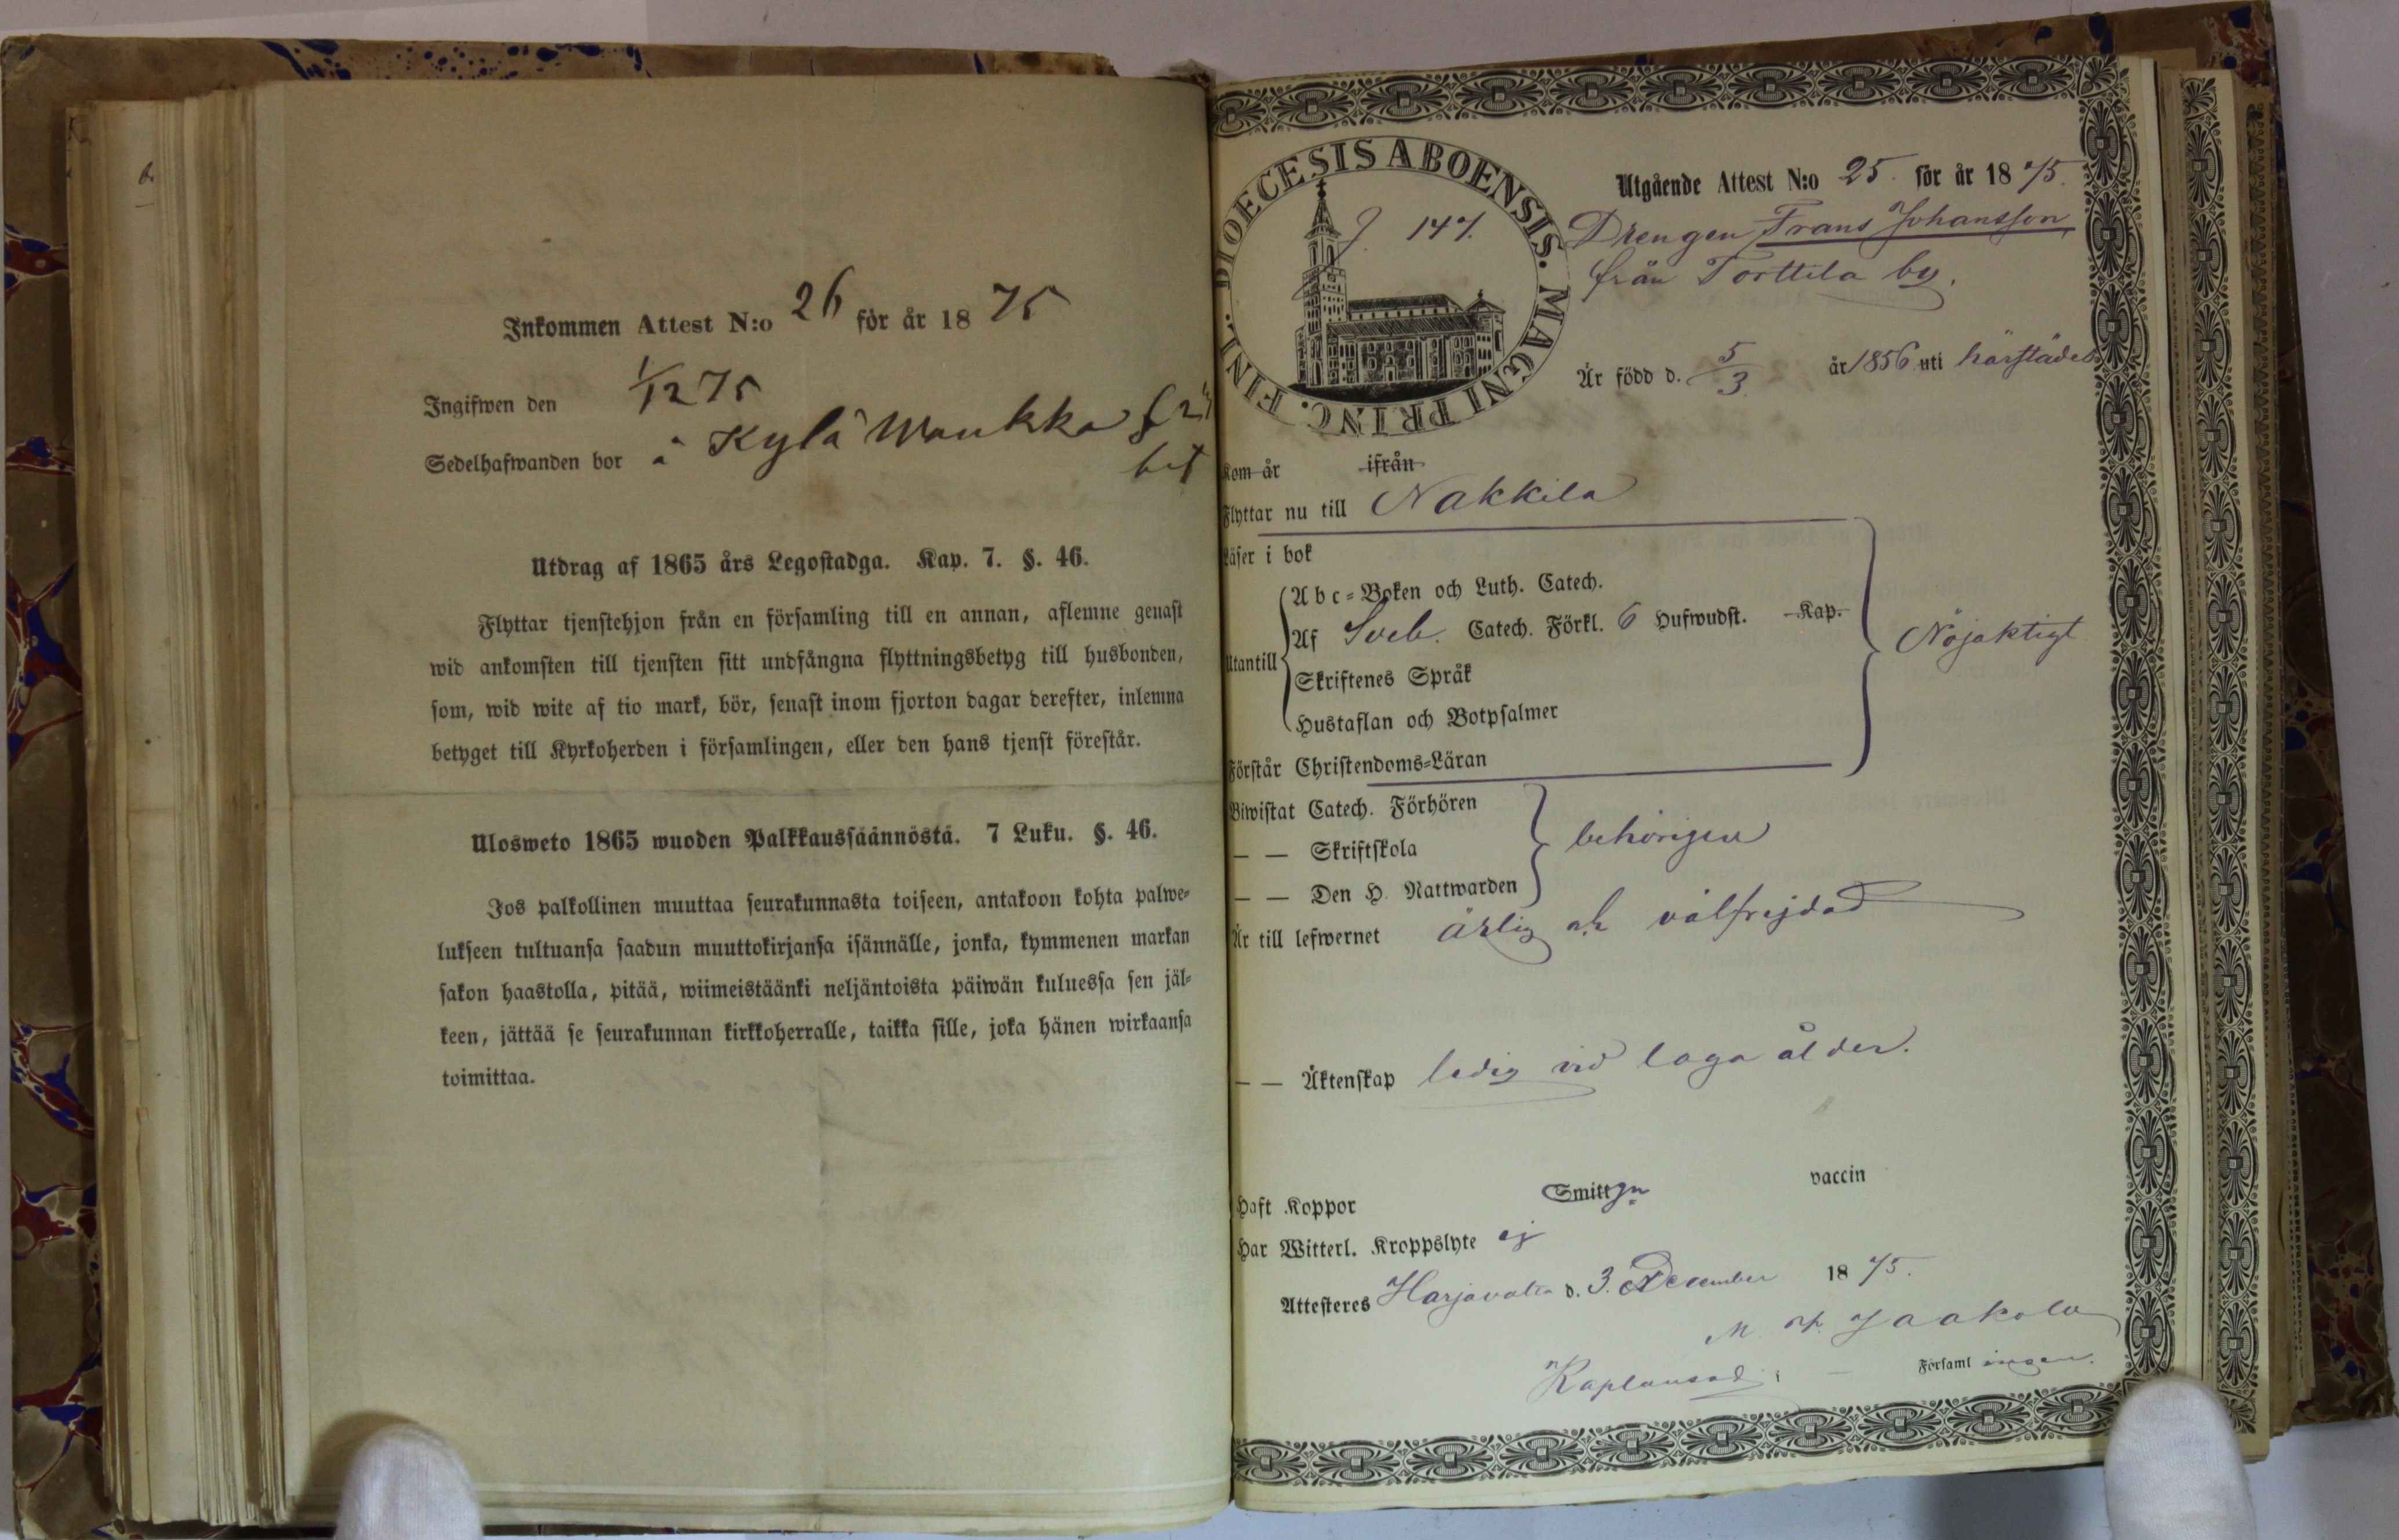 6.
Inkommen Attest N:o 26 för år 1875
Ingifwen den 1/12 75
Sedelhafwanden bor å Kylä Waukka
Utdrag af 1865 års Legostadga. Kap. 7. §. 46.
Flyttar tjenstehjon från en församling till en annan, aflemne genast
wid ankomsten till tjensten sitt undfångna flyttningsbetyg till husbonden,
som, wid wite af tio mark, bör, senast inom fjorton dagar derefter, inlemna
betyget till Kyrkoherden i församlingen, eller den hans tjenst förestår.
Ulosweto 1865 wuoden Palkkaussäännöstä. 7 Luku. §. 46.
Jos palkollinen muuttaa seurakunnasta toiseen, antakoon kohta palwe-
lukseen tultuansa saadun muuttokirjansa isännälle, jonka, kymmenen markan
sakon haastolla, pitää, wiimeistäänki neljäntoista päiwän kuluessa sen jäl-
keen, jättää se seurakunnan kirkkoherralle, taikka sille, joka hänen wirkaansa
toimittaa.
DIOECESIS ABOENSIS. MAGNI PRINC. FINL.
147.
Utgående Attest N:o 25. för år 1875.
Drengen Frans Johansson,
från Torttila by.
Är född d. 5/3. år 1856 uti härstädes
Kom år ifrån
Flyttar nu till Nakkila
Läser i bok
Abc-Boken och Luth. Catech.
Utantill Af Sveb. Catech. Förkl. 6 Hufwudst. Kap.
Nöjaktigt
Skriftenes Språk
Hustaflan och Botpsalmer
Förstår Christendoms-Läran
Biwistat Catech. Förhören
— — Skriftskola behörigen
— — Den H. Nattwarden
Är till lefwernet ärlig och välfrejdad
— — Äktenskap ledig vid laga ålder.
Haft Koppor Smitt vaccin
Har Witterl. Kroppslyte ej
Attesteres Harjavalta d. 3. December 1875.
Jaakola
Kaplansad. i — Församlingen.